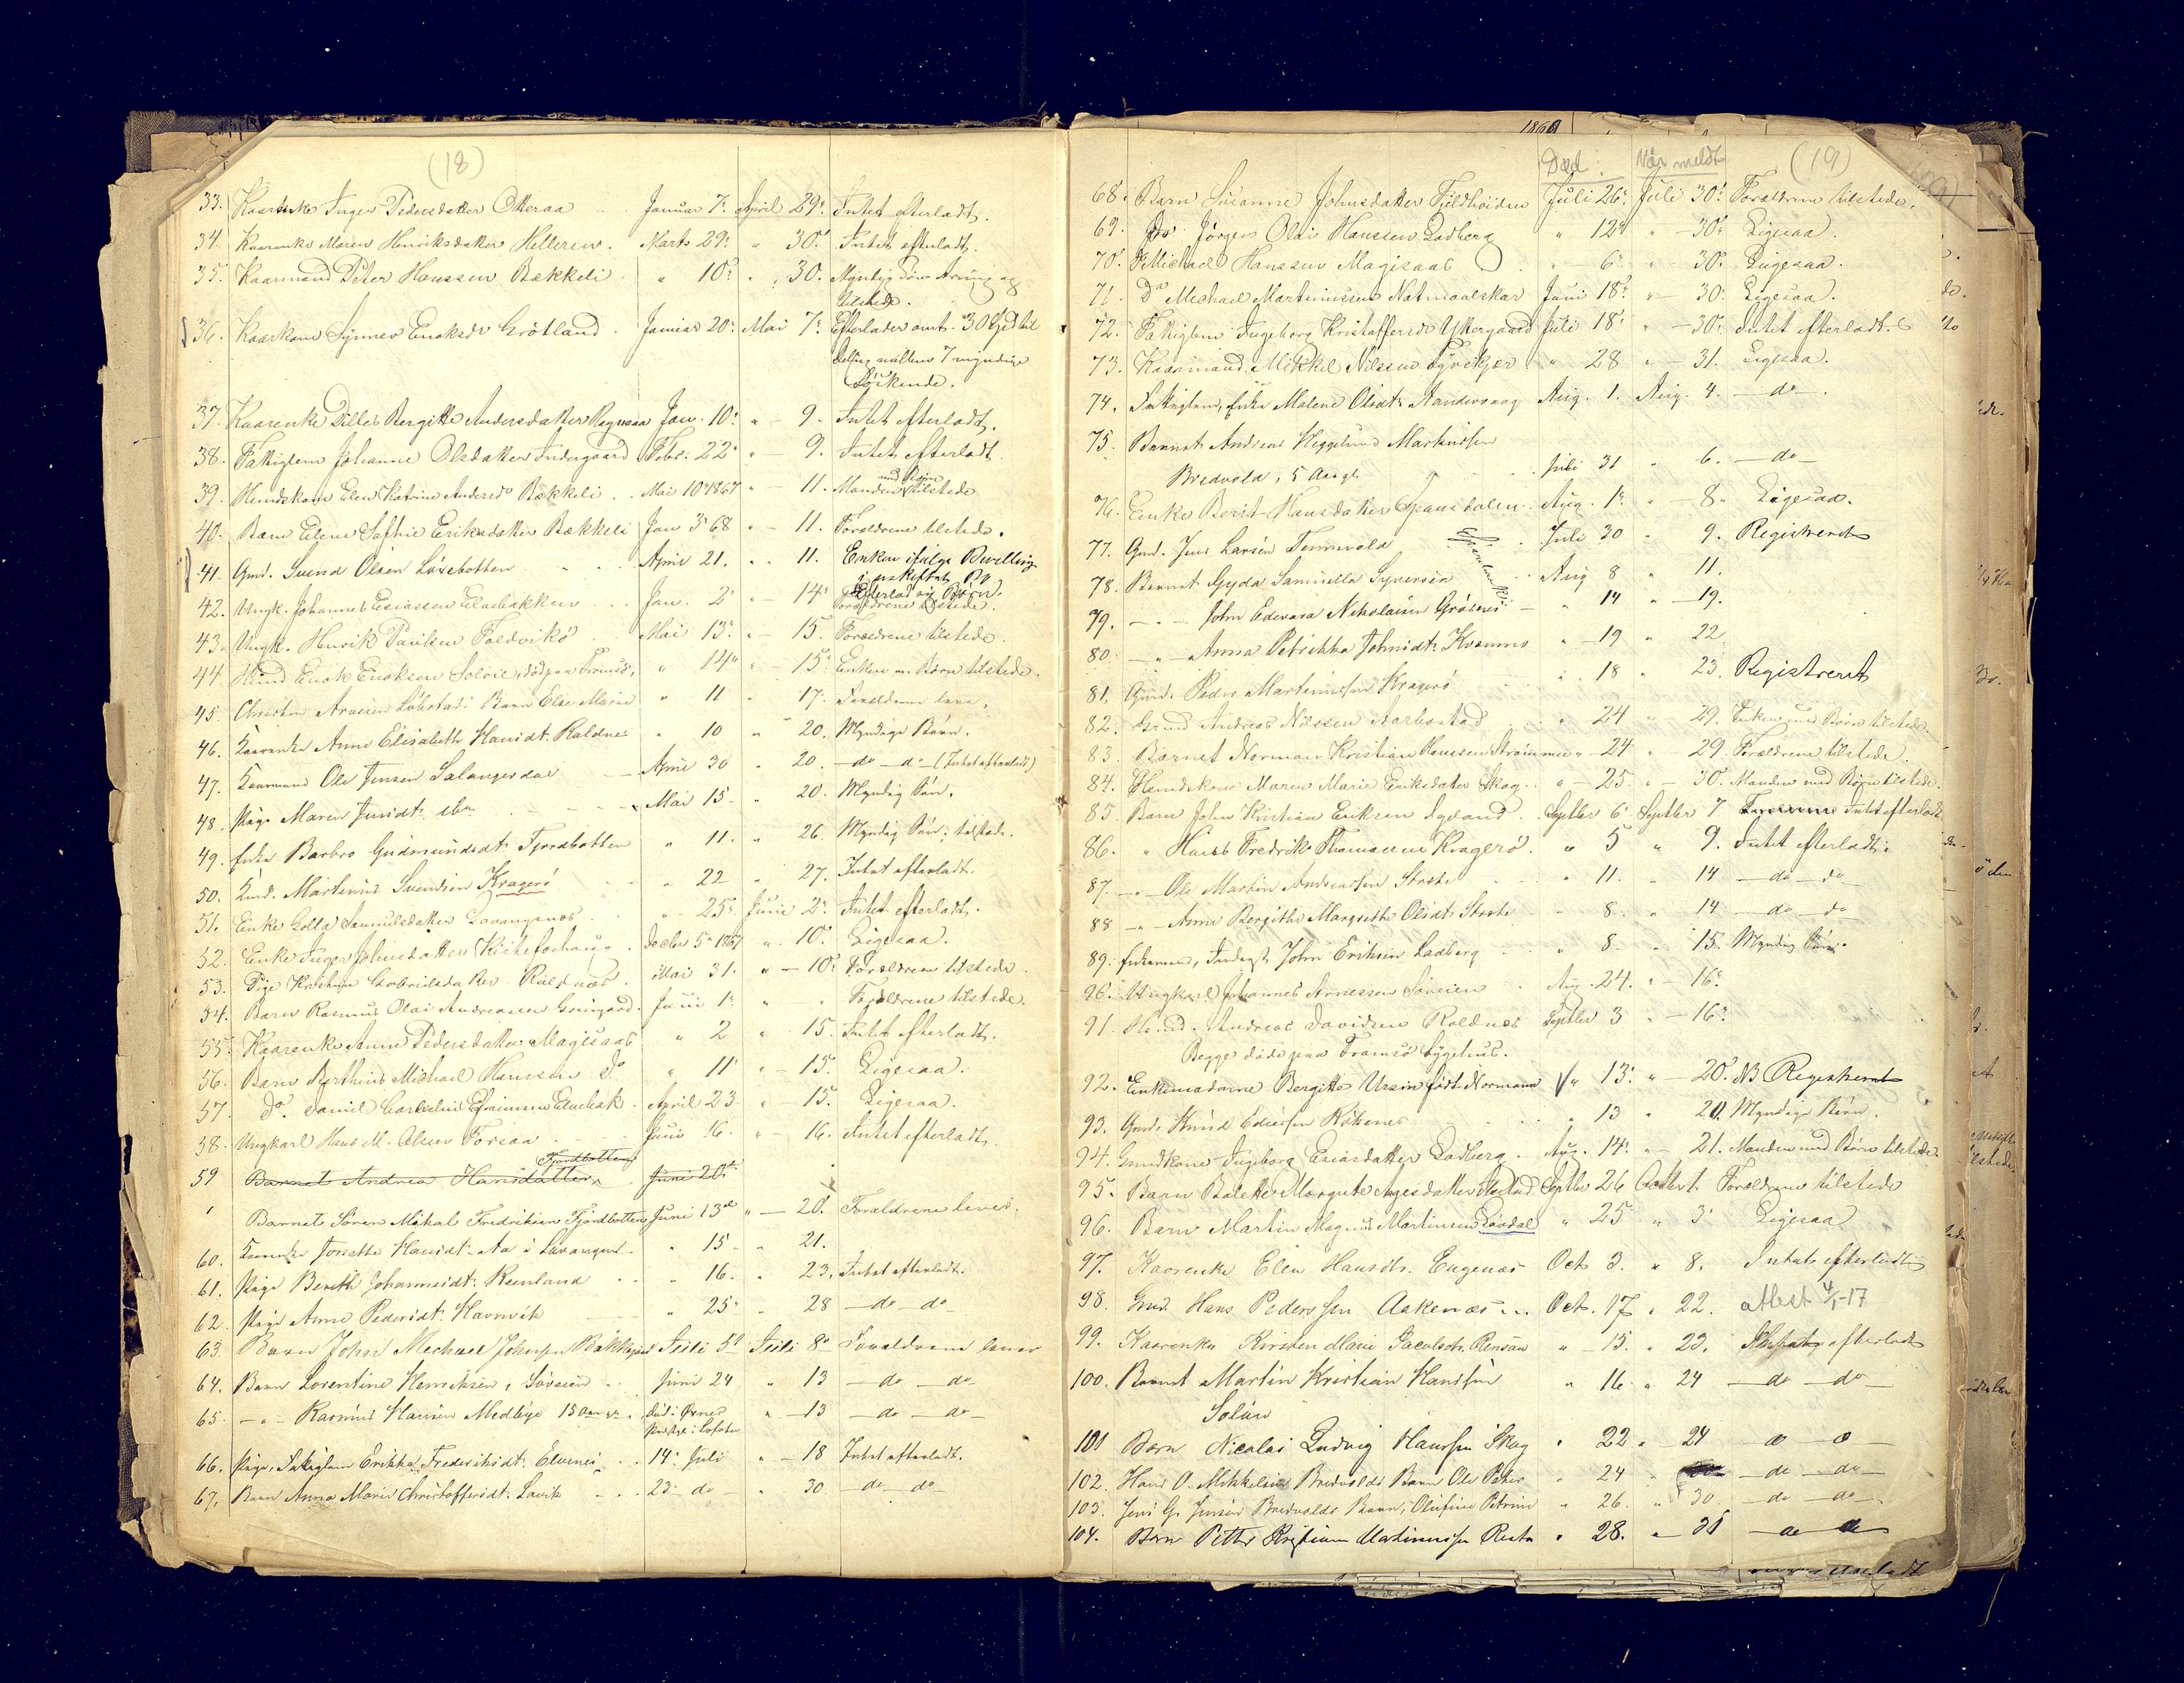 (18)
33. Kaarenke Inger Pedersdatter Otteraa Januar 7. April 29. Intet efterladt.
34. Kaarenke Maren Henriksdatter Hellersen. Marts 29. " 30. Intet efterladt.
35. Kaarmand Peter Hanssen Bækkeli " 10. " 30. Myndig Søn Arving og
tilstede.
36. Kaarkone Synnev Enoksdr Grötland Januar 20. Mai 7. Efterlader omt. 30 Spd til
Deling mellem 7 myndige
Söskende.
37. Kaarenke Bergitte Andersdatter Jan. 10. " 9. Intet efterladt.
38. Fattiglem Johanne Olsdatter Indergaard Febr. 22. " 9. Intet efterladt
39. Huuskone Elen Katrine Andersdr Bækkeli Mai 10. 1867 " 11. Manden med Börn tilstede
40. Barn Elene Sofhie Eriksdatter Bækkeli Jan 3. 68 " 11. Forældrene tilstede.
41. Gmd. Svend Olsen Lövebotten April 21. " 11. Enken ifølge Bevilling
i uskiftet Bo
42. Ungk. Johannes Esiassen Elvebakken Jan. 2. " 14. Efterlod sig Börn.
Forældrene tilstede.
43. Ungk. Henrik Paulsen Foldvik Mai 13. " 15. Forældrene tilstede.
44. Enok Enoksen Solöie, död paa Tromsö, " 14. " 15. Enken m. Börn tilstede.
45. Christen Arnesen Barn Else Marie " 11 " 17. Forældrene leve.
46. Kaarenke Anne Elisabeth Hansdt. Roldnes " 10 " 20. Myndige Börn.
47. Kaarmand Ole Jensen Salangsdal April 30 " 20. -do - do- (Intet efterladt)
48. Pige Maren Jensdt. Mai 15 " 20. Myndig Sön.
49. Enke Barbro Gudmundsdt. Fjordbotten " 11. " 26. Myndig Sön; tilstede.
50. Martinus Svendsen Kragerö " 22 " 27. Intet efterladt.
51. Enke Golla Samuelsdatter Lavangsnes " 25. Juni 2. Intet efterladt.
52. Enke Inger Johnsdatter Decbr 5. 1867 " 10. Ligesaa.
53. Pige Gabrielsdatter Roldnæs Mai 31. " - 10. Forældrene tilstede.
54. Barn Rasmus Olai Andreassen Juni 1. " " Forældrene tilstede.
55. Kaarenke Anne Pedersdatter Magisaas " 2 " 15. Intet efterladt.
56. Barn Berthius Michael Hanssen do " 11 " 15. Ligesaa.
57. do. Daniel Efraimsen Elvebak. April 23. " 15. Ligesaa.
58. Ungkarl Hans M. Olsen Forsaa Juni 16. " 16. Intet efterladt.
59 Barnet Andrea Hansdatter Fjordbotten Juni 20de
" Barnet Sören Mikal Fredriksen Fjordbotten Juni 13de " - 20. Forældrene lever.
60. Kaarenke Hansdt. Aa i Lavangen " 15 " 21.
61. Pige Berith Johannesdt. Reenland " 16. " 23. Intet efterladt.
62. Pige Anne Pedersdt. Havnvik " 25. " 28 - do - do -
63. Barn John Michael Johnsen Juli 5. Juli 8. Forældrene lever
64. Barn Lorentine Henriksen, Söveien Juni 24 " 13 - do - do -
65. - " - Rasmus Hansen Medbye 15 Aar Död i
Lofoten " - 13 - do - do -
66. Pige, Fattiglem Erikka Frederiksdt. Elvenes 14. Juli " - 18 Intet efterladt.
67. Barn Anna Marie Christoffersdt. Lavik 23. do " 30 - do - do -
1868
Død: Når meldt (19)
68. Barn Susanne Johnsdatter Fjeldhöiden Juli 26. Juli 30. Forældrene tilstede.
69. do Jörgen Olai Hanssen Ladberg " 12. " - 30. Ligesaa.
70. Michael Hanssen Magisaas " 6. " - 30. Ligesaa.
71. do Michael Martinussen Natmaalskar Juni 18. " - 30. Ligesaa.
72. Fattiglem Ingeborg Kristoffersdr Yttergaard Juli 18. " - 30. Intet efterladt.
73. Kaarmand Mikkel Nilssen " 28 " - 31. Ligesaa.
74. Fattiglem, Enke Malene Olsdt. Aandervaag Aug. 1. Aug. 4. - do -
75. Barnet Andreas Heggelund Martinssen
Bredvold, 5 Aar gl. Juli 31 " 6. - do -
76. Enke Berit Hansdatter Spansdalen. Aug. 1. " - 8. Ligesaa.
77. Gmd. Jens Larsen Tennevold Juli 30 " 9. Registreret
78. Barnet Gyda Samuella Syversen Aug 8 " 11.
79. - " - John Edevard Nikolaisen " 14 " - 19.
80. - " - Anna Petrikka Johnsdt. Kvamno " - 19 " 22
81. Gmd. Peder Martinussen Kragerö " 18 " 23. Registreret
82. Andreas Nilssen Aarbostad " 24 " 29. Enken med Börn tilstede.
83. Barnet Norman Kristian Hanssen Strömmen " - 24 " 29 Forældrene tilstede.
84. Huuskone Maren Marie Eriksdatter Skog " - 25 " - 30. Manden med Börn tilstede.
85. Barn John Kristian Eriksen Septbr 6. Septbr 7 Intet efterladt
86. " Hans Fredrik Thomassen Kragerö. " 5 " 9. Intet efterladt.
87. - " - Ole Martin Andreassen " 11. " 14 - do - do
88 - " - Anne Bergithe Margrethe Olsdt. " 8. " 14 - do - do
89. Enkemand, John Eriksen Ladberg " 8. " 15. Myndig Börn.
90. Ungkarl Johannes Arnessen Söveien Aug. 24. " - 16.
91. Andreas Davidsen Roldnes Septbr 3 " - 16.
Begge döde paa Tromsö Sygehus.
92. Enkemadame Bergitte Ursin födt Normann " 13. " - 20. NB Registreret
93. Gmd. Knud Röknes " 13 " 20. Myndige Börn.
94. Gmdkone Ingeborg Esiasdatter Ladberg. Aug. 14. " - 21. Manden med Börn tilstede
95. Barn Margrete Septbr 26 Octbr 1. Forældrene tilstede
96. Barn Martin Magnus Martinsen Lövdal " 25 " 3. Ligesaa
97. Kaarenke Elen Hansdtr. Engenæs Oct 3. " 8. Intet efterladt
98. Gmd. Hans Pederssen Aakenæs Oct. 17 " 22. attest 4/1-17
99. Kaarenke Kirsten Marie Jacobsdtr. Rensaa " - 15. " 23. Intet efterladt
100. Barnet Martin Kristian Hanssen " 16 " 24 - do - do -
101 Barn Nicolai Ludvig Hanssen Skog " 22 " - 24 - o - o -
102. Hans O. Mikkelsen Bredvolds Barn Ole Peter " 24 " - do - do -
103. Jens G. Jensen Bredvolds Barn, Olufine Petrine " 26. " 30. - do - do -
104. Barn Petter Kristian Martinussen " 28. " - 31 - do - do